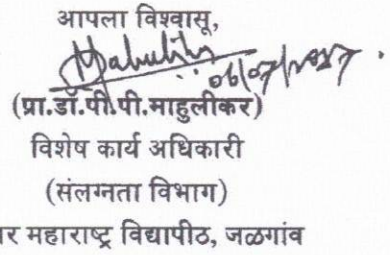 आपला विश्वासू,
(प्रा.डॉ.पी.पी.माहुलीकर)
विशेष कार्य अधिकारी
(संलग्नता विभाग)
महाराष्ट्र विद्यापीठ, जळगांव